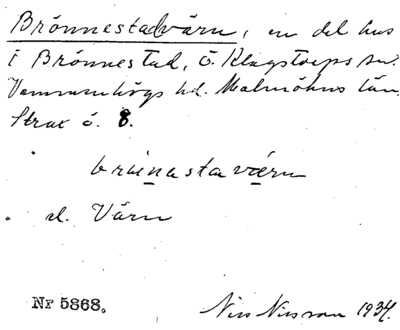 Brönnestadvärn, en del hus
i Brönnestad, Ö. Klagstorps sn.
Vemmenhögs hd. Malmöhus län.
Strax ö. 8.
brúnastavǽrn
el. Värn
Nr 5868.
Nils Nilsson 1934.